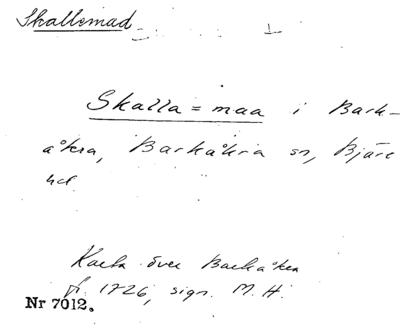 Skallemad
Skalla = maa i Bark-
åkra, Barkåkra sn, Bjäre
hd.
Karta över Barkåkra
fr. 1726, sign. M. H.
Nr 7012.